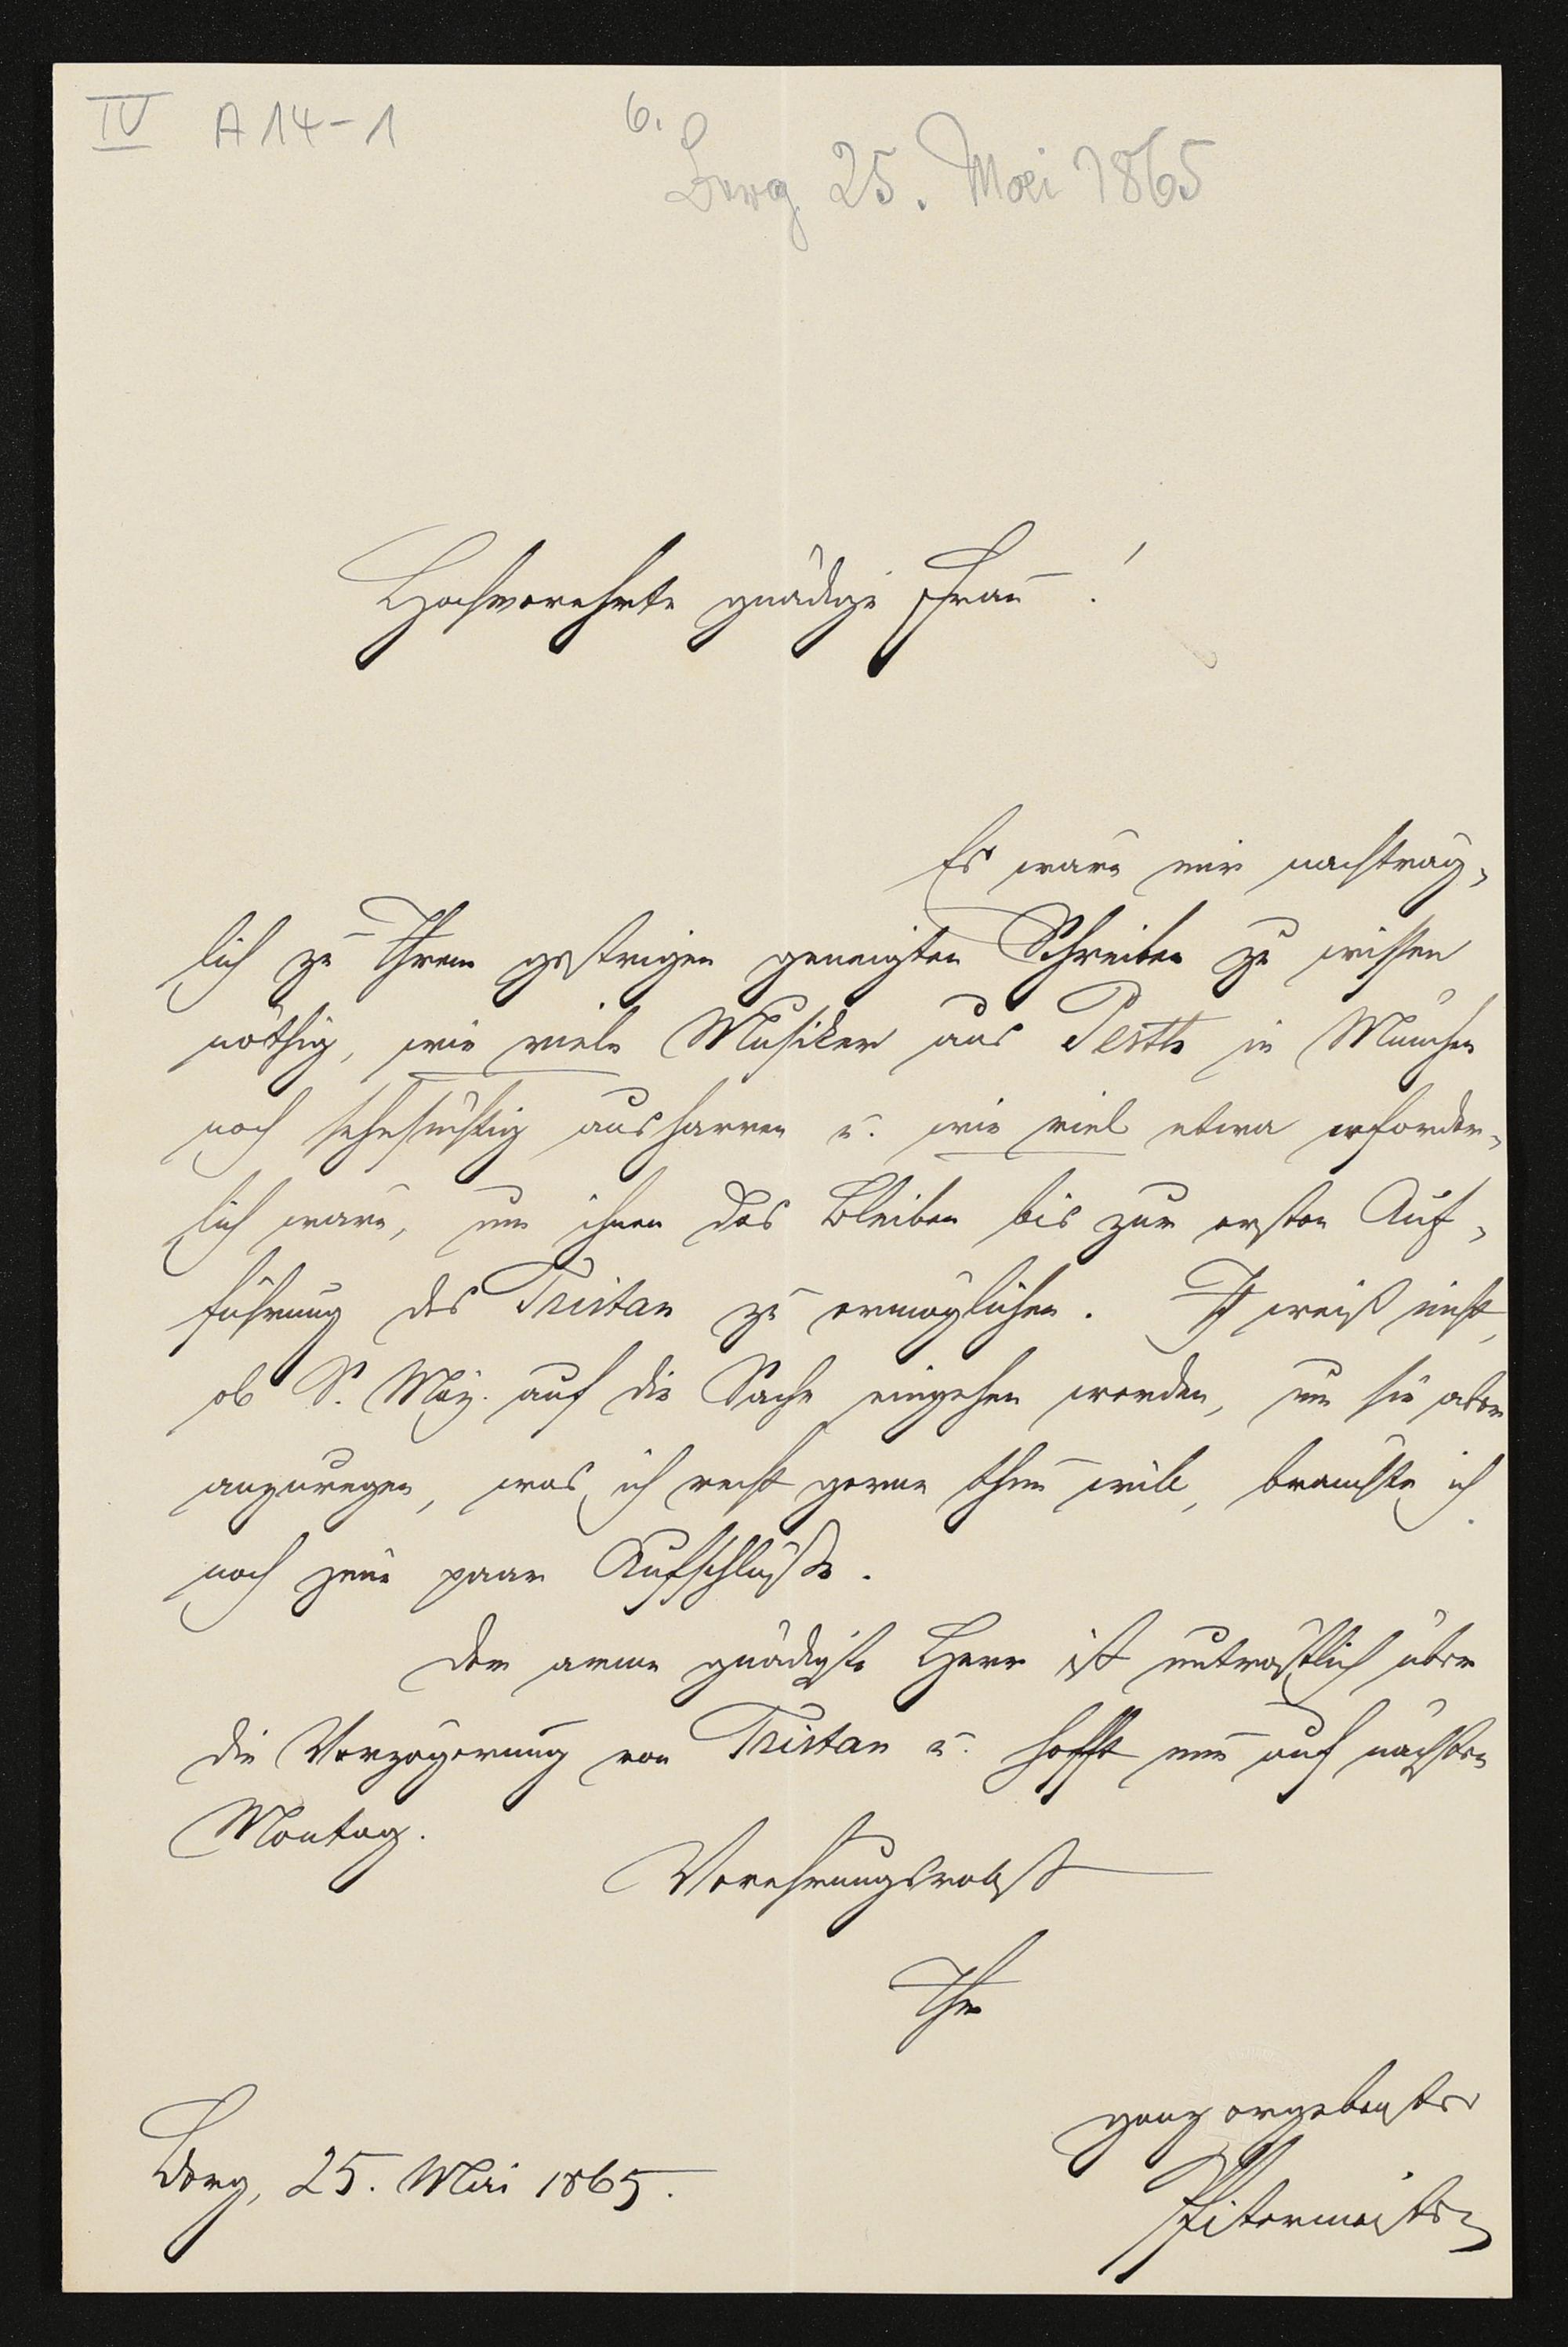 IV A 14-1 6.
Berg 25. Mai 1865
Hochverehrte gnädige Frau!
Es wäre mir nachträg-
lich zu Ihrem gestrigen geneigten Schreiben zu wissen
nöthig, wie viele Musiker aus Pesth in München
noch sehnsüchtig ausharren u. wie viel etwa erforder-
lich wäre, um ihnen das Bleiben bis zur ersten Auf-
führung des Tristan zu ermöglichen. Ich weiß nicht,
ob S. Maj. auf die Sache eingehen werden, um sie aber
anzuregen, was ich recht gerne thun will, brauchte ich
noch jene paar Aufschlüße.
Der arme gnädigste Herr ist untröstlich über
die Verzögerung von Tristan u. hofft nun auf nächsten
Montag.
Verehrungsvollst
Ihr
ganz ergebenster
Berg, 25. Mai 1865.
Pfistermeister